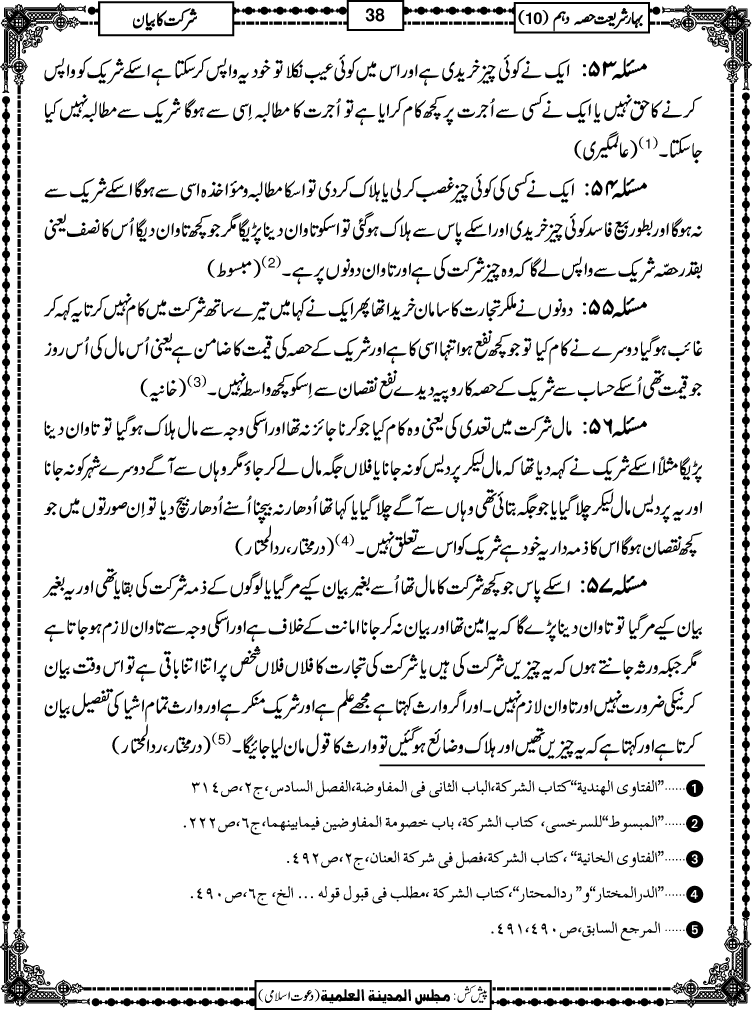 بہارِ شریعت حصہ دہم (10)
38
شرکت کا بیان
مسئلہ ۵۳: ایک نے کوئی چیز خریدی ہے اور اس میں کوئی عیب نکلا تو خود یہ واپس کر سکتا ہے اسکے شریک کو واپس
کرنے کا حق نہیں یا ایک نے کسی سے اُجرت پر کچھ کام کرایا ہے تو اُجرت کا مطالبہ اِسی سے ہوگا شریک سے مطالبہ نہیں کیا
جا سکتا۔(1) (عالمگیری)
مسئلہ ۵۴: ایک نے کسی کی کوئی چیز غصب کر لی یا ہلاک کر دی تو اسکا مطالبہ و مؤاخذہ اسی سے ہوگا اسکے شریک سے
نہ ہوگا اور بطور بیع فاسد کوئی چیز خریدی اور اسکے پاس سے ہلاک ہوگئی تو اسکو تاوان دینا پڑیگا مگر جو کچھ تاوان دیگا اُس کا نصف یعنی
بقدر حصّہ شریک سے واپس لے گا کہ وہ چیز شرکت کی ہے اور تاوان دونوں پر ہے۔(2) (مبسوط)
مسئلہ ۵۵: دونوں نے ملکر تجارت کا سامان خریدا تھا پھر ایک نے کہا میں تیرے ساتھ شرکت میں کام نہیں کرتا یہ کہہ کر
غائب ہوگیا دوسرے نے کام کیا تو جو کچھ نفع ہوا تنہا اسی کا ہے اور شریک کے حصہ کی قیمت کا ضامن ہے یعنی اُس مال کی اُس روز
جو قیمت تھی اُسکے حساب سے شریک کے حصہ کا روپیہ دیدے نفع نقصان سے اِسکو کچھ واسطہ نہیں۔(3) (خانیہ)
مسئلہ ۵۶: مال شرکت میں تعدی کی یعنی وہ کام کیا جو کرنا جائز نہ تھا اور اسکی وجہ سے مال ہلاک ہوگیا تو تاوان دینا
پڑیگا مثلاً اسکے شریک نے کہہ دیا تھا کہ مال لیکر پردیس کو نہ جانا یا فلاں جگہ مال لے کر جاؤ مگر وہاں سے آگے دوسرے شہر کو نہ جانا
اور یہ پردیس مال لیکر چلا گیا یا جو جگہ بتائی تھی وہاں سے آگے چلا گیا یا کہا تھا اُدھار نہ بیچنا اُسنے اُدھار بیچ دیا تو اِن صورتوں میں جو
کچھ نقصان ہوگا اس کا ذمہ دار یہ خود ہے شریک کو اس سے تعلق نہیں۔(4) (درمختار، ردالمحتار)
مسئلہ ۵۷: اسکے پاس جو کچھ شرکت کا مال تھا اُسے بغیر بیان کیے مر گیا یا لوگوں کے ذمہ شرکت کی بقایا تھی اور یہ بغیر
بیان کیے مر گیا تو تاوان دینا پڑے گا کہ یہ امین تھا اور بیان نہ کر جانا امانت کے خلاف ہے اور اسکی وجہ سے تاوان لازم ہو جاتا ہے
مگر جبکہ ورثہ جانتے ہوں کہ یہ چیزیں شرکت کی ہیں یا شرکت کی تجارت کا فلاں فلاں شخص پر اتنا اتنا باقی ہے تو اس وقت بیان
کرنیکی ضرورت نہیں اور تاوان لازم نہیں۔ اور اگر وارث کہتا ہے مجھے علم ہے اور شریک منکر ہے اور وارث تمام اشیا کی تفصیل بیان
کرتا ہے اور کہتا ہے کہ یہ چیزیں تھیں اور ہلاک و ضائع ہوگئیں تو وارث کا قول مان لیا جائیگا۔(5) (درمختار، ردالمحتار)
1 ......"الفتاوی الھندیة"کتاب الشرکة،الباب الثانی فی المفاوضة،الفصل السادس،ج۲،ص۳۱۴
2 ......"المبسوط"للسرخسی، کتاب الشرکة، باب خصومة المفاوضین فیمابینھما،ج۶،ص۲۲۲.
3 ......"الفتاوی الخانیة" ،کتاب الشرکة،فصل فی شرکة العنان،ج۲،ص۴۹۲.
4 ......"الدرالمختار"و" ردالمحتار"،کتاب الشرکة ،مطلب فی قبول قوله ... الخ، ج۶،ص۴۹۰.
5 ...... المرجع السابق،ص۴۹۰،۴۹۱.
پیش کش: مجلس المدینة العلمیة (دعوتِ اسلامی)